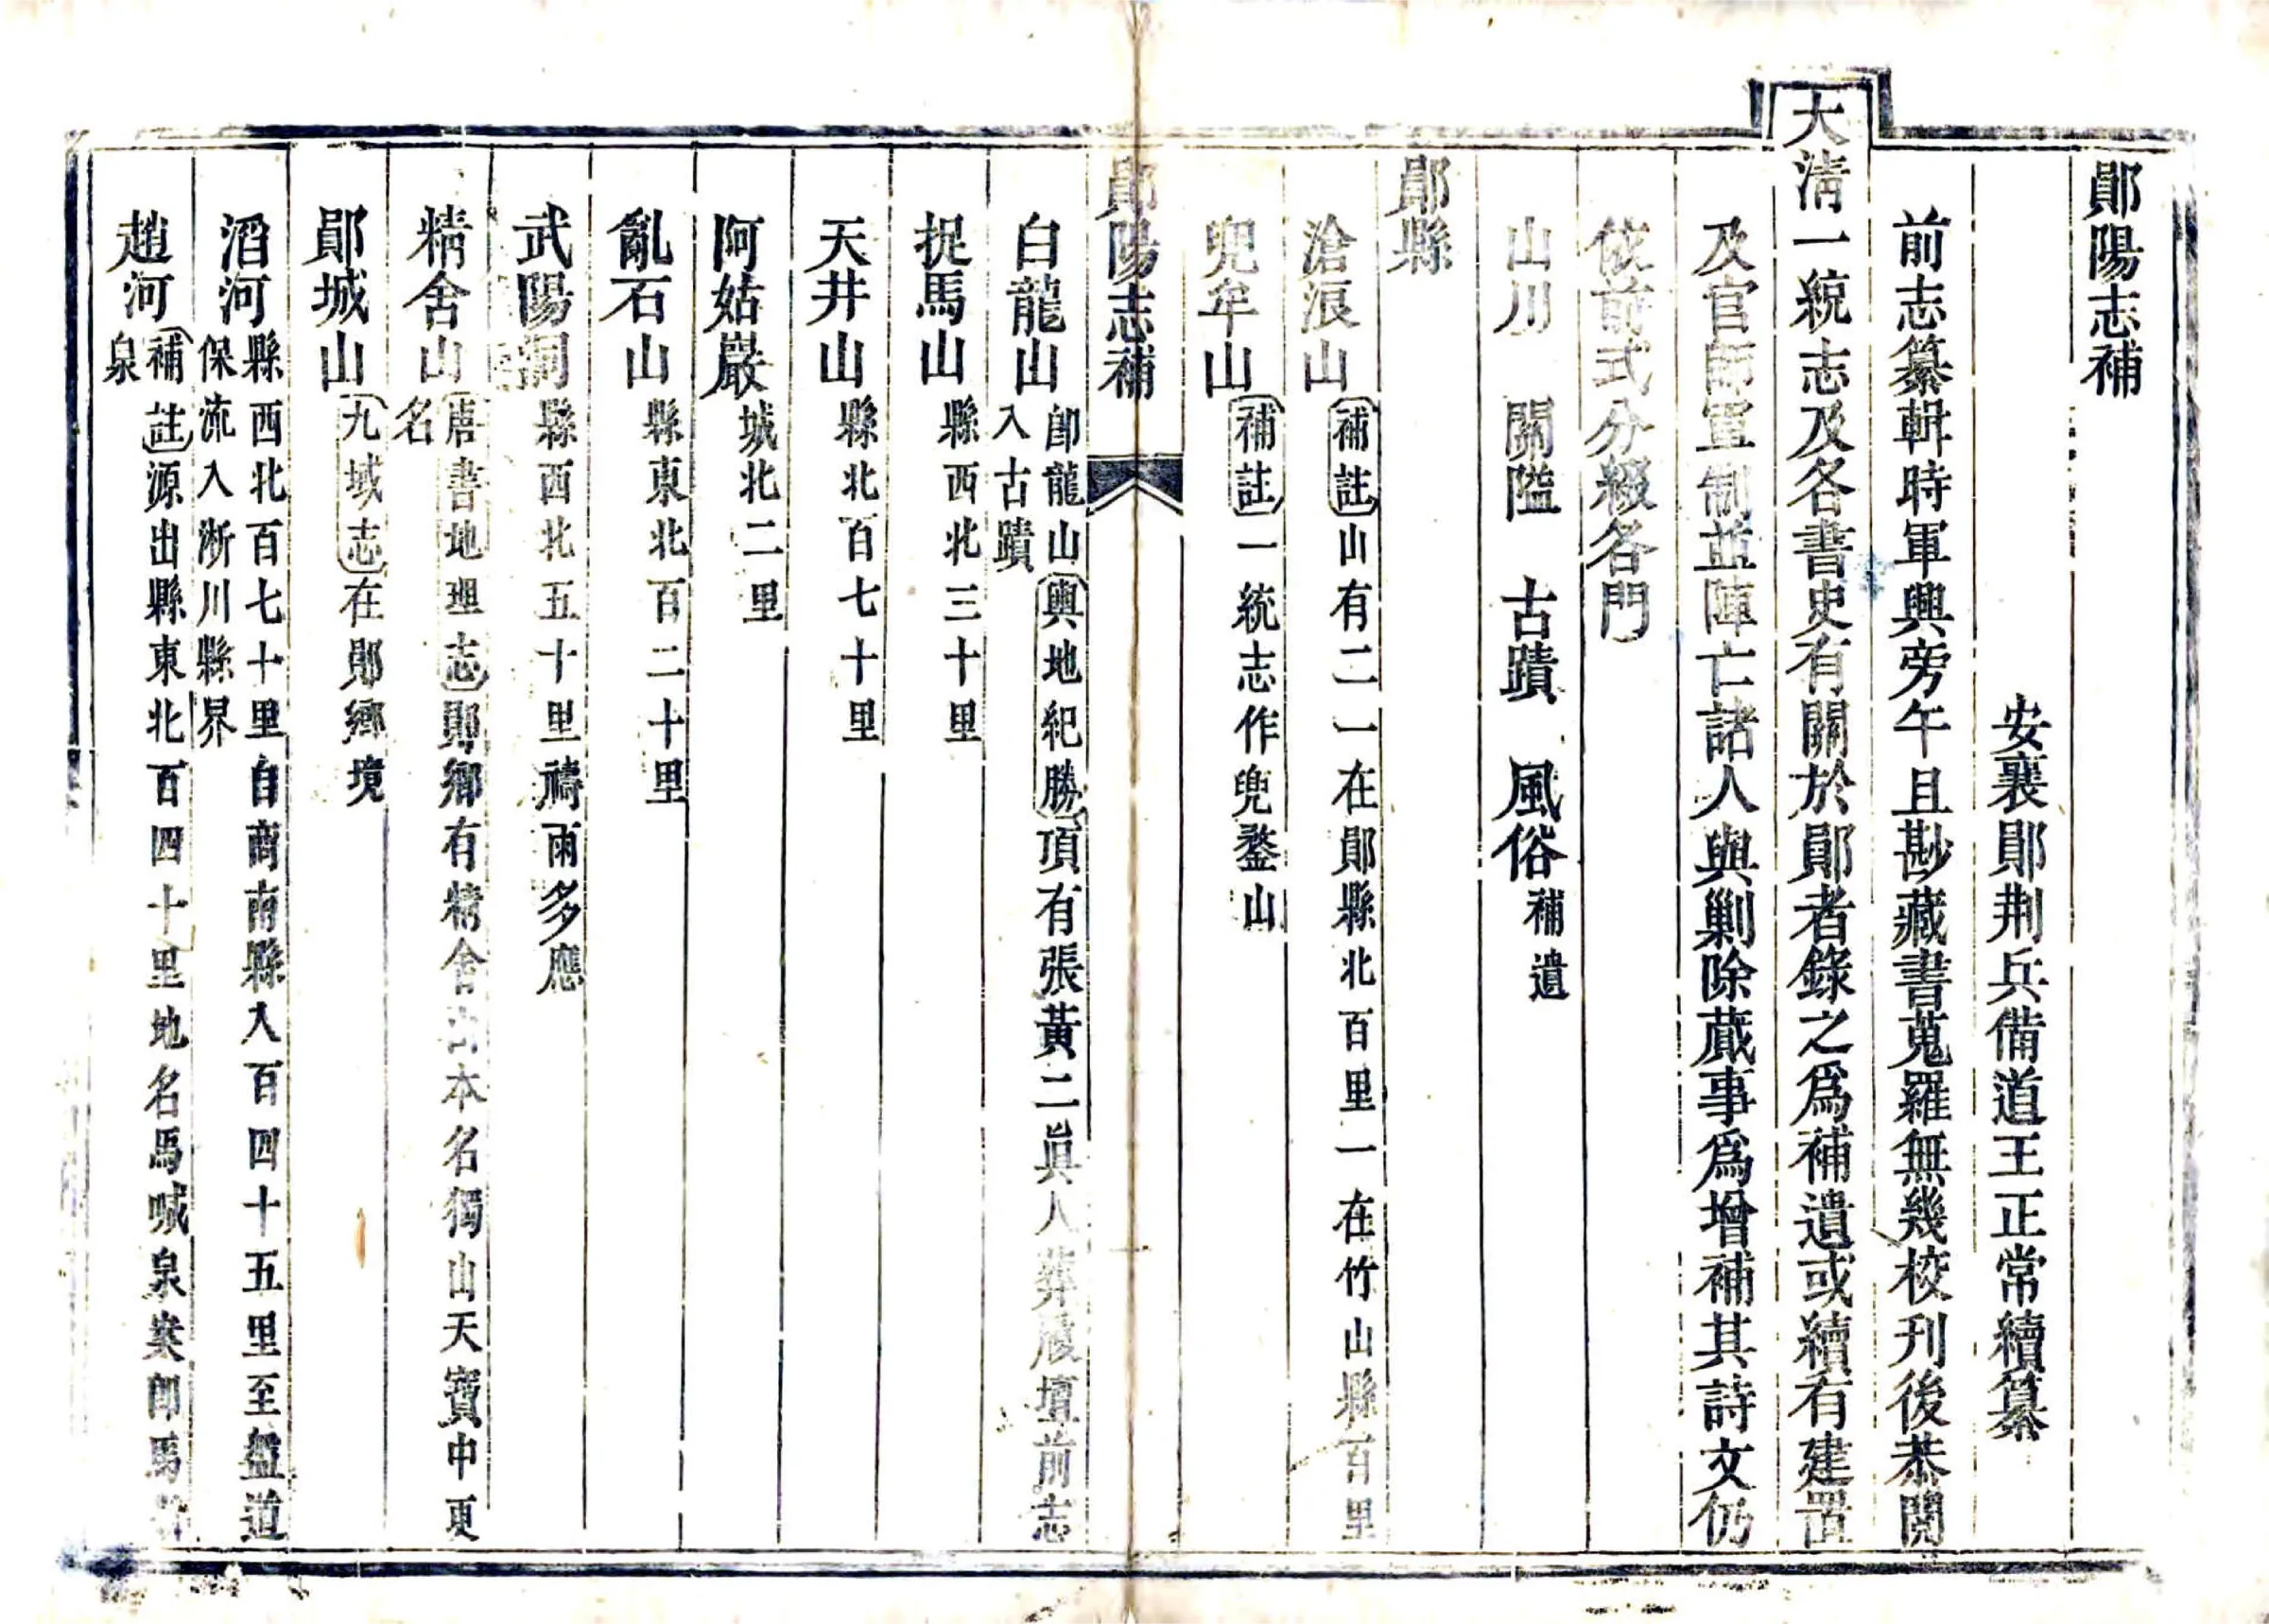 鄖陽志補
安襄鄖荆兵備道王正常續纂
前志纂輯時軍興旁午且尠藏書蒐羅無幾校刊後恭閱
大清一統志及各書史有關於鄖者錄之爲補遺或續有建置
及官師軍制並陣亡諸人與剿除蕆事爲增補其詩文仍
依前式分綴各門
山川　關隘　古蹟　風俗補遺
鄖縣
滄浪山補註山有二一在鄖縣北百里一在竹山縣百里
兜牟山補註一統志作兜鍪山
鄖陽志補
白龍山卽龍山輿地紀勝頂有張黃二眞人葬履壇前志
入古蹟
捉馬山縣西北三十里
天井山縣北百七十里
阿姑巖城北二里
亂石山縣東北百二十里
武陽洞縣西北五十里禱雨多應
精舍山唐書地理志鄖鄉有精舍山本名獨山天寶中更
名
鄖城山九域志在鄖鄉境
滔河縣西北百七十里自商南縣入百四十五里至盤道
保流入淅川縣界
趙河補註源出縣東北百四十里地名馬喊泉案卽馬
泉